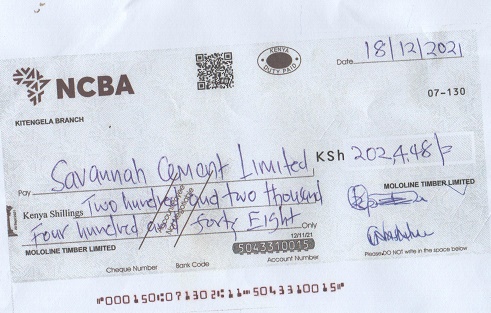 KENYA
DUTY PAID
Date 18/12/2021
NCBA
07-130
KITENGELA BRANCH
Pay Savannah Cement Limited KSh 202,4.48/=
MOLOLINE TIMBER LIMITED
Kenya Shillings Two hundred and two thousand
Four hundred forty Eight Only
MOLOLINE TIMBER LIMITED
12/11/21
5043310015
Cheque Number Bank Code Account Number
Please DO NOT write in the space below
000150 07130 2 11 5043310015